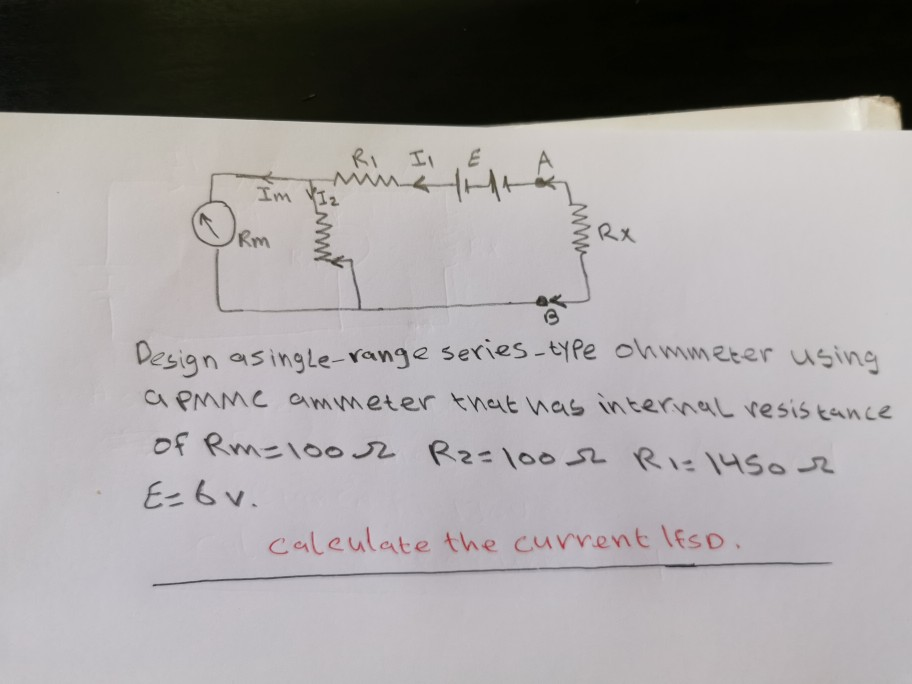 R1 I1 E A
Im I2
Rm Rx
B
Design a single-range series-type ohmmeter using
a PMMC ammeter that has internal resistance
of Rm=100 Ω R2=100 Ω R1=1450 Ω
E=6v.
calculate the current IFSD.